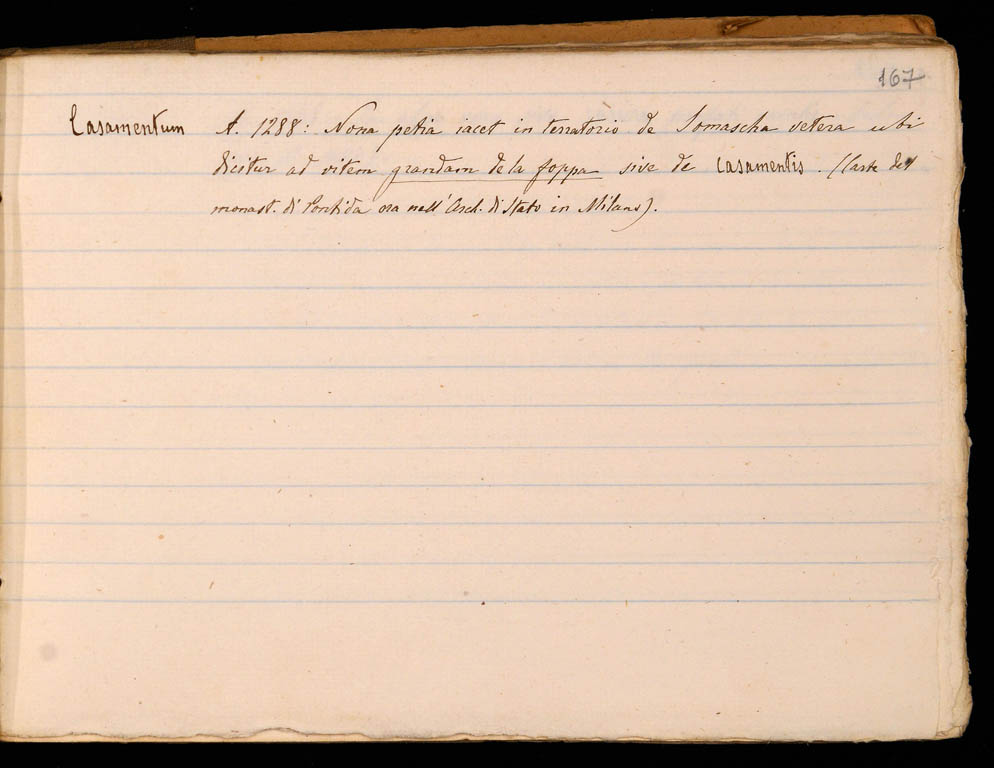 167
Casamentum A. 1288: Nona petia iacet in terratorio de Somascha vetera ubi
dicitur ad vitem grandam de la foppa sive de casamentis. (Carte del
monast. di Pontida ora nell'Arch. di Stato in Milano).